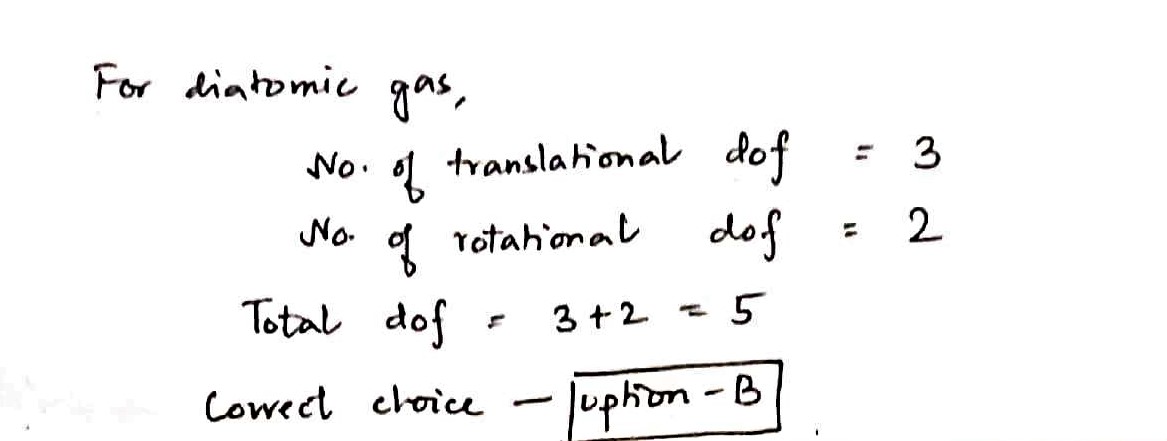 For diatomic gas,
No. of translational dof = 3
No. of rotational dof = 2
Total dof = 3 + 2 = 5
Correct choice - option - B